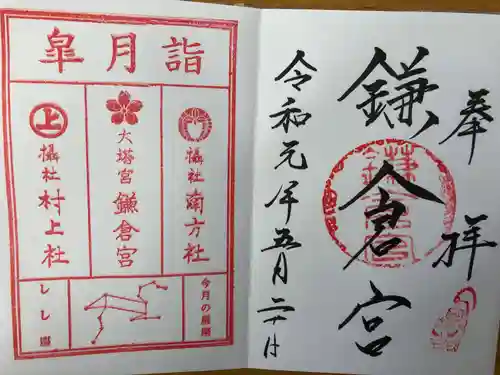 奉拝
鎌倉宮
令和元年五月二十日
皐月詣
摂社 南方社
大塔宮 鎌倉宮
上
摂社 村上社
今月の星座
しし座